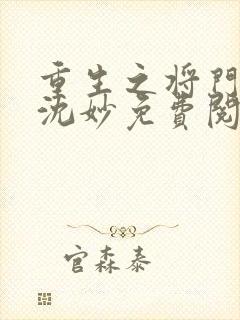 重生之将门
沈妙免费阅
官森泰